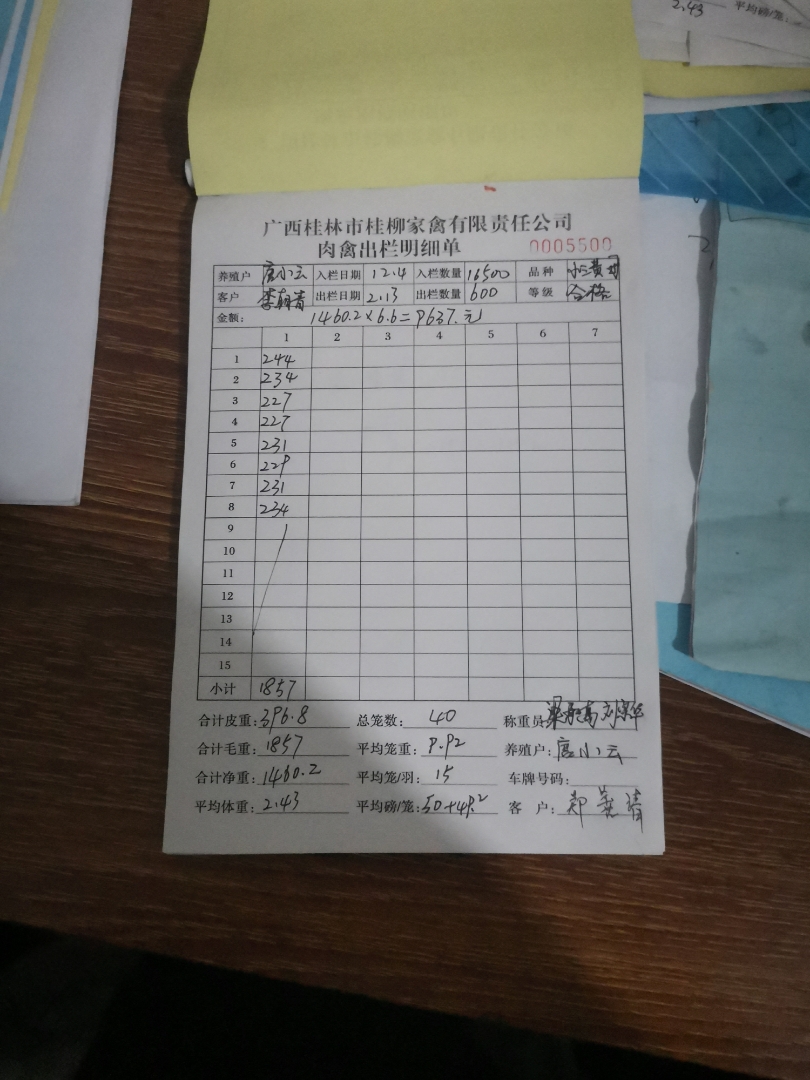 2.43 平均磅/笼:
广西桂林市桂柳家禽有限责任公司
肉禽出栏明细单 0005500
养殖户 唐小云 入栏日期 12.4 入栏数量 16500 品种
客户 出栏日期 2.13 出栏数量 600 等级 合格
金额: 1460.2×6.6=9637.元
1 2 3 4 5 6 7
1 244
2 234
3 227
4 227
5 231
6 229
7 231
8 234
9
10
11
12
13
14
15
小计 1857
合计皮重: 396.8 总笼数: 40 称重员:
合计毛重: 1857 平均笼重: 9.92 养殖户: 唐小云
合计净重: 1460.2 平均笼/羽: 15 车牌号码:
平均体重: 2.43 平均磅/笼: 50+49.2 客户: